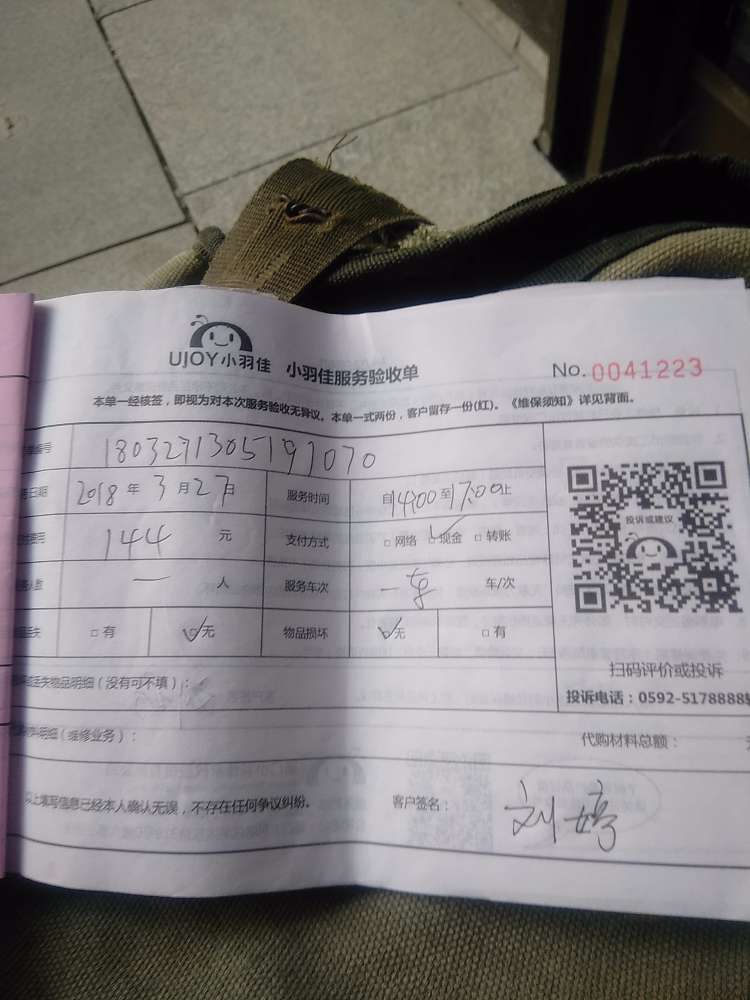 UJOY小羽佳 小羽佳服务验收单 No.0041223
本单一经核签，即视为对本次服务验收无异议。本单一式两份，客户留存一份(红)。《维保须知》详见背面。
编号 1803271305197070
日期 2018年3月27日 服务时间 自14:00至17:00止
费用 144元 支付方式 □网络 □现金 □转账
人数 一人 服务车次 一车 车/次
丢失 □有 □无 物品损坏 □无 □有
投诉或建议
扫码评价或投诉
投诉电话：0592-5178888
丢失物品明细（没有可不填）：
明细（维修业务）： 代购材料总额：
以上填写信息已经本人确认无误，不存在任何争议纠纷。 客户签名： 刘婷